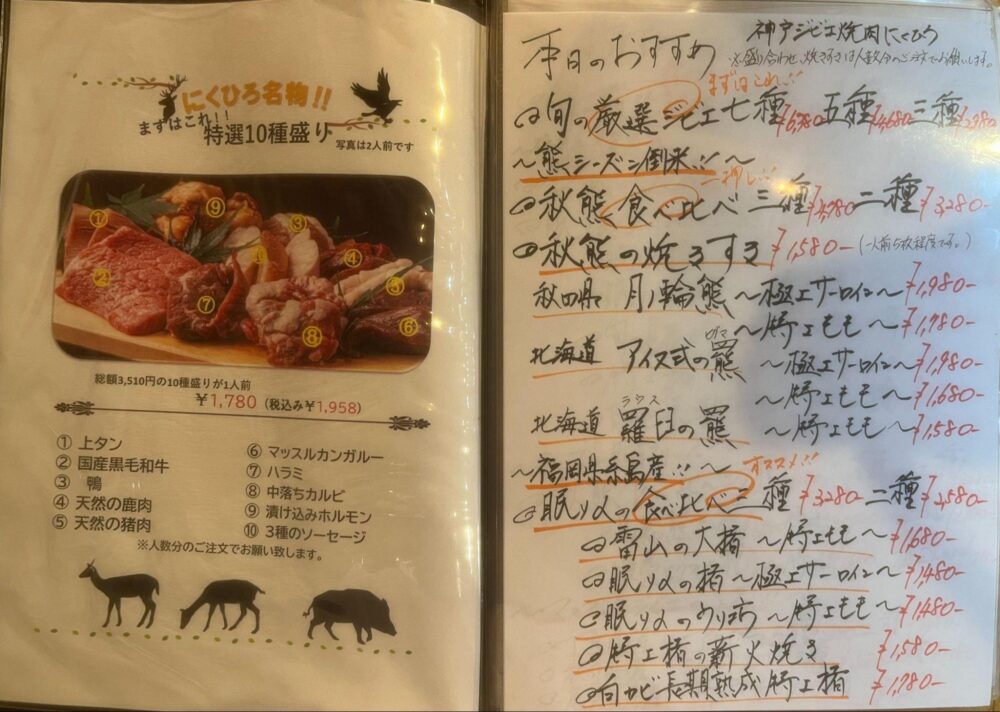 にくひろ名物!!
まずはこれ!!
特選10種盛り
写真は2人前です
① ② ③ ④ ⑤ ⑥ ⑦ ⑧ ⑨
総額3,510円の10種盛りが1人前
¥1,780（税込み¥1,958）
① 上タン
② 国産黒毛和牛
③ 鴨
④ 天然の鹿肉
⑤ 天然の猪肉
⑥ マッスルカンガルー
⑦ ハラミ
⑧ 中落ちカルビ
⑨ 漬け込みホルモン
⑩ 3種のソーセージ
※人数分のご注文でお願い致します。
本日のおすすめ 神戸ジビエ焼肉にくひろ
※盛り合わせ、焼きすきは人数分のご注文でお願いします。
まずはこれ!!
旬の厳選ジビエ七種¥6,780 五種¥4,680 三種¥2,980
～熊シーズン到来!!～
一押し!!
秋熊食べ比べ 三種¥4,780- 二種¥3,280-
秋熊の焼きすき ¥1,580-（一人前5枚程度です。）
秋田県 月ノ輪熊 ～極上サーロイン～ ¥1,980-
～特上もも～ ¥1,780-
北海道 アイヌ式の羆 ～極上サーロイン～ ¥1,980-
ヒグマ
～特上もも～ ¥1,680-
ラウス
北海道 羅臼の羆 ～特上もも～ ¥1,580-
～福岡県糸島産!!～
オススメ!!
眠り人の食べ比べ三種 ¥3,280- 二種 ¥2,580-
雷山の大猪 ～特上もも～ ¥1,680-
眠り人の猪 ～極上サーロイン～ ¥1,480-
眠り人のウリ坊 ～特上もも～ ¥1,480-
特上猪の薪火焼き ¥1,580-
白カビ長期熟成特上猪 ¥1,780-